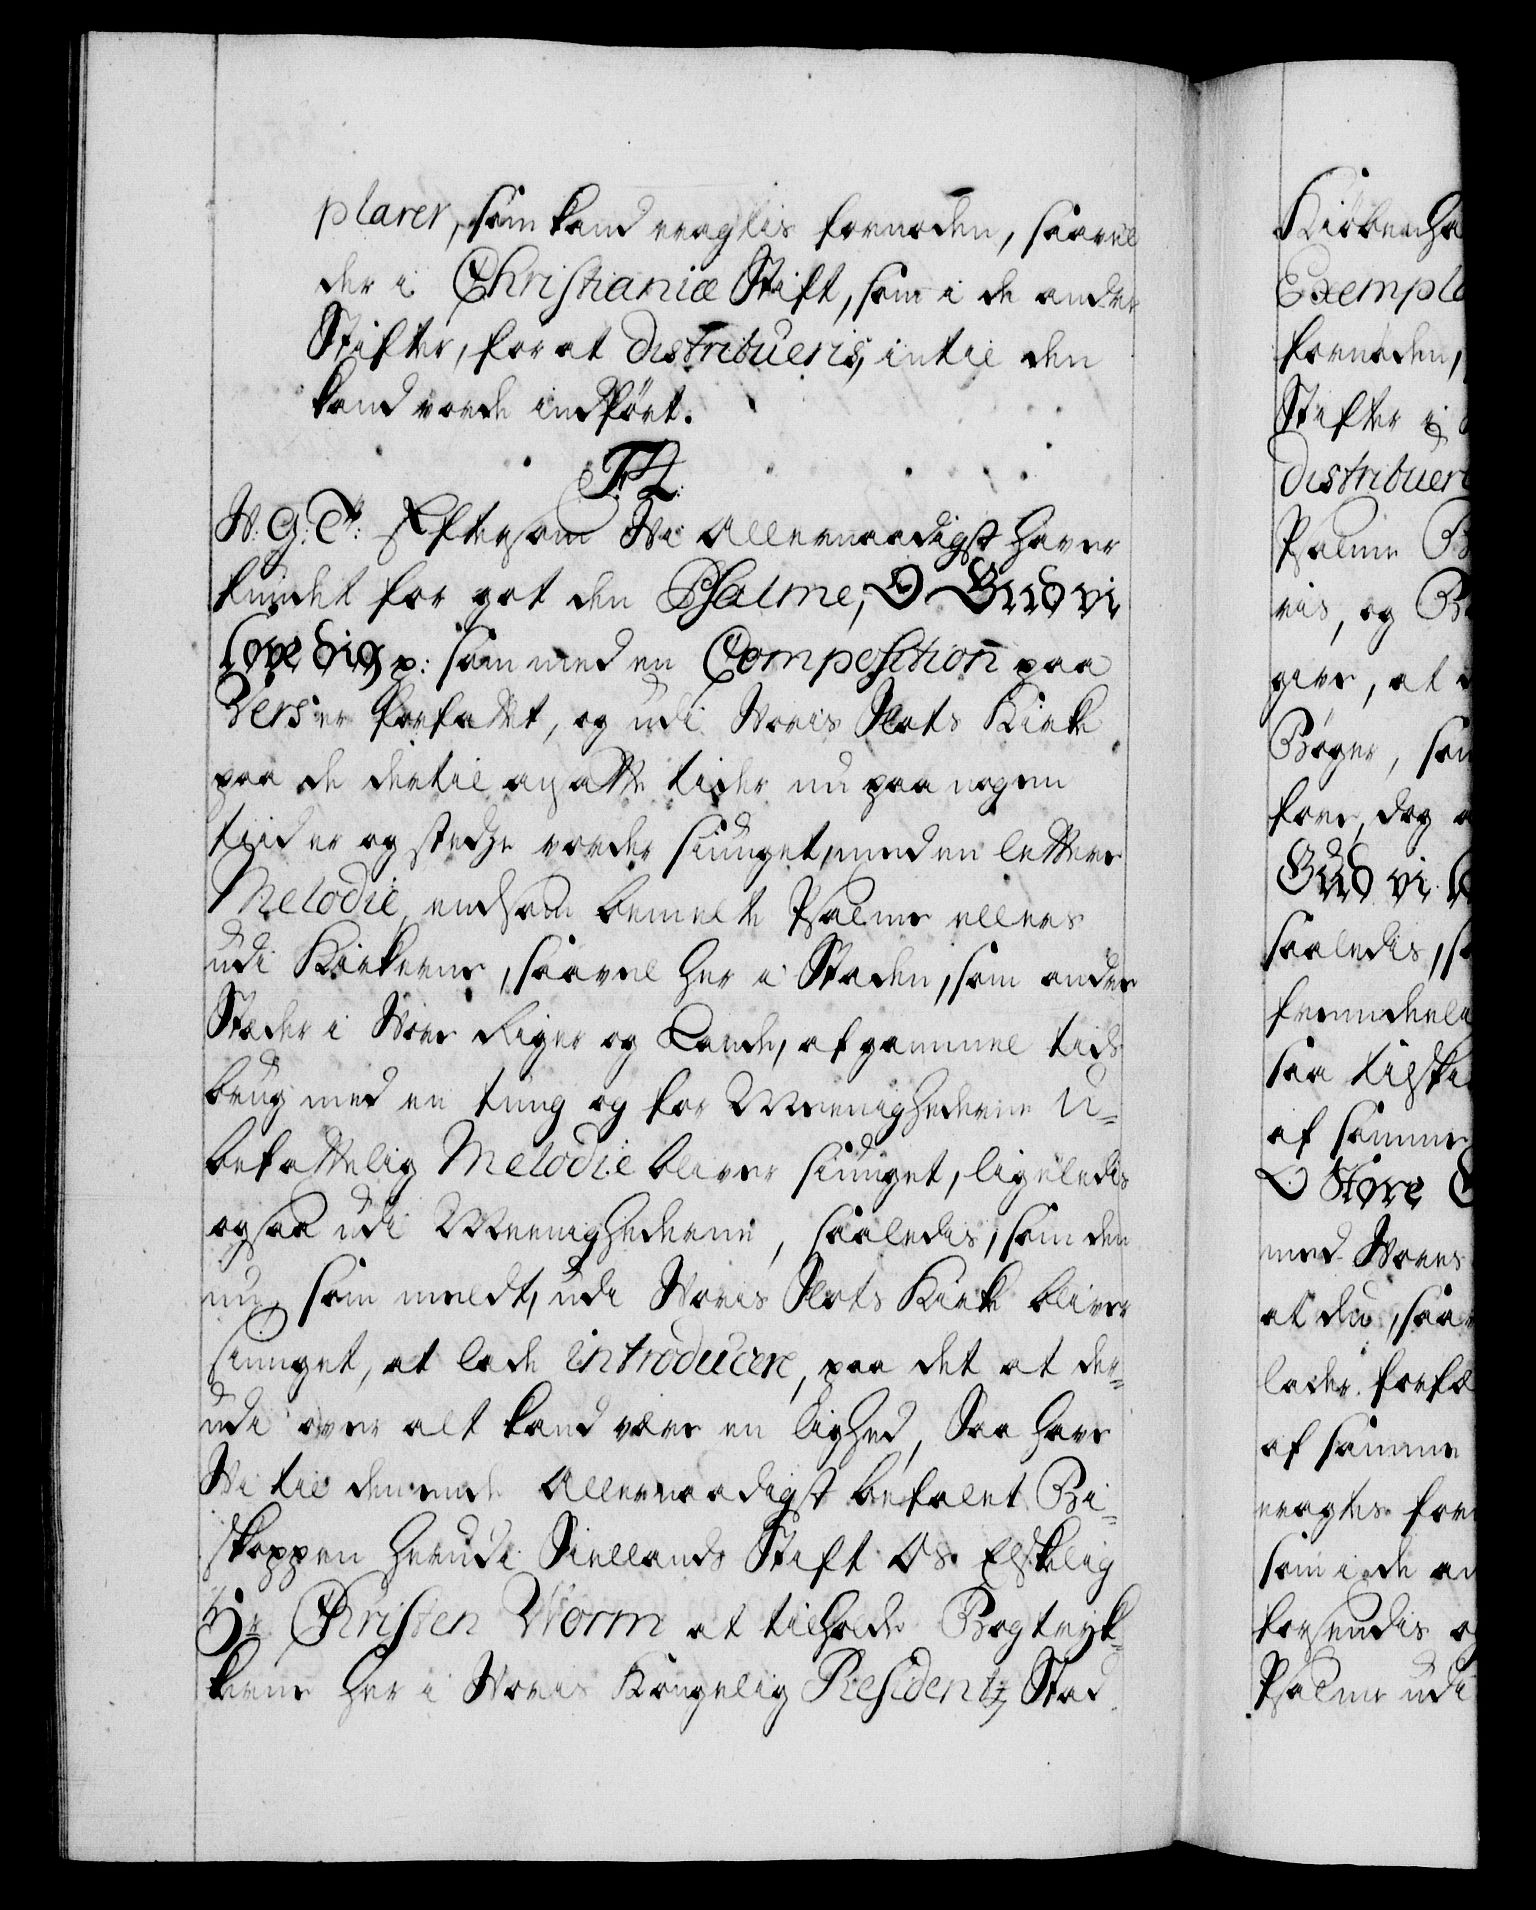 plarer, som kand eragtis fornøden, saavel
der i Christianiæ Stift, som i de andre
Stifter, for at distribueris, intil den
kand vorde indført.
F 4.
W. G. T.: Eftersom Wi Allernaadigst haver
fundet for got den Psalme, O Gud vi
love dig p: som med en Composition paa
Vers er forfattet, og udi Woris Slots Kirke
paa de dertil ansatte tider nu paa nogen
tiid er og stedze vorder siunget, med en lettere
Melodie, endsom bemelte Psalme ellers
udi Kirkerne, saavel her i Staden, som andre
Stæder i Wore Riger og Lande, af gammel tids
brug med en tung og for Meenighederne u-
befattelig Melodie bliver siunget, ligeledis
ogsaa udi Meenighederne, saaledis, som den
nu, som meldt, udi Woris Slots Kirke bliver
siunget, at lade introducere, paa det at der-
udi over alt kand være en lighed, Saa have
Wi til den ende Allernaadigst befalet Bi-
skoppen herudi Siellands Stift Os Elskelig
Hr Christen Worm at tilholde Bogtryk-
kerne her i Woris Kongelig Residentz Stad
Kiøbenha
Exempla
fornøden,
Stifter i
distribuer
Psalme B
vis, og B
give, at
Bøger, som
fore, dog
Gud vi l
saaledis, s
fremdeeli
saa tilskik
af samme
O Store G
med Wores
at du, saa
lader forfæ
af samme
eragtes forn
som i de an
forsendis og
Psalme udi